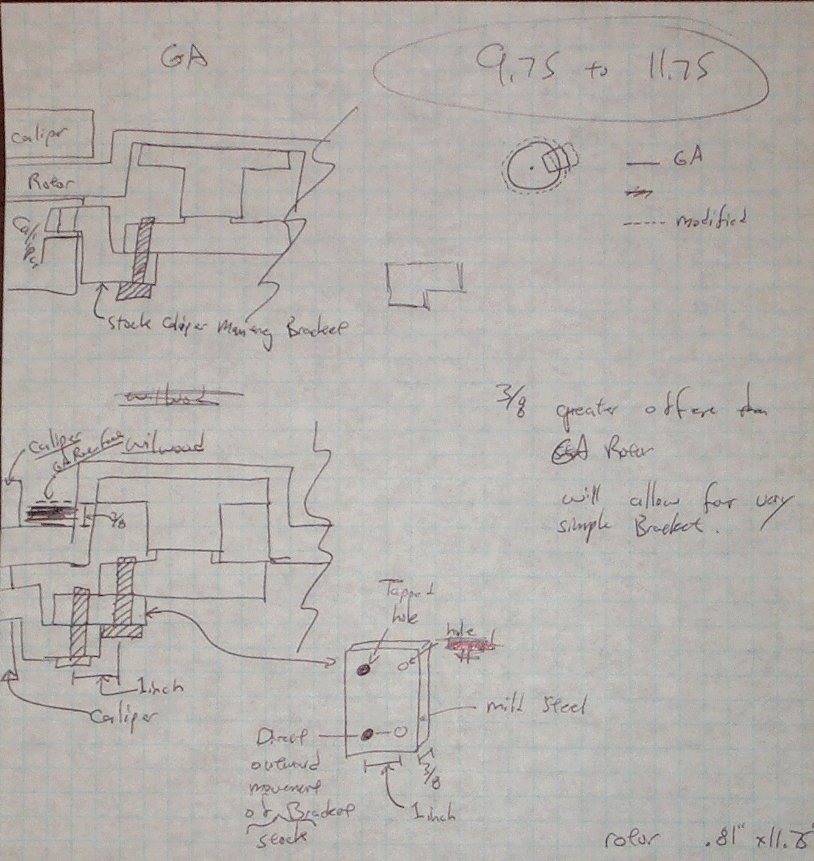 GA
9.75 to 11.75
Caliper
Rotor
Caliper
GA
modified
Stock Caliper Bracket
wilwood
3/8 greater offset than
GA Rotor
will allow for very
simple Bracket.
Caliper
GA
wilwood
3/8
1 inch
Caliper
Tapped
hole
hole
mild steel
Direct
outward
movement
of Bracket
stock
3/8
1 inch
rotor .81" x 11.75"